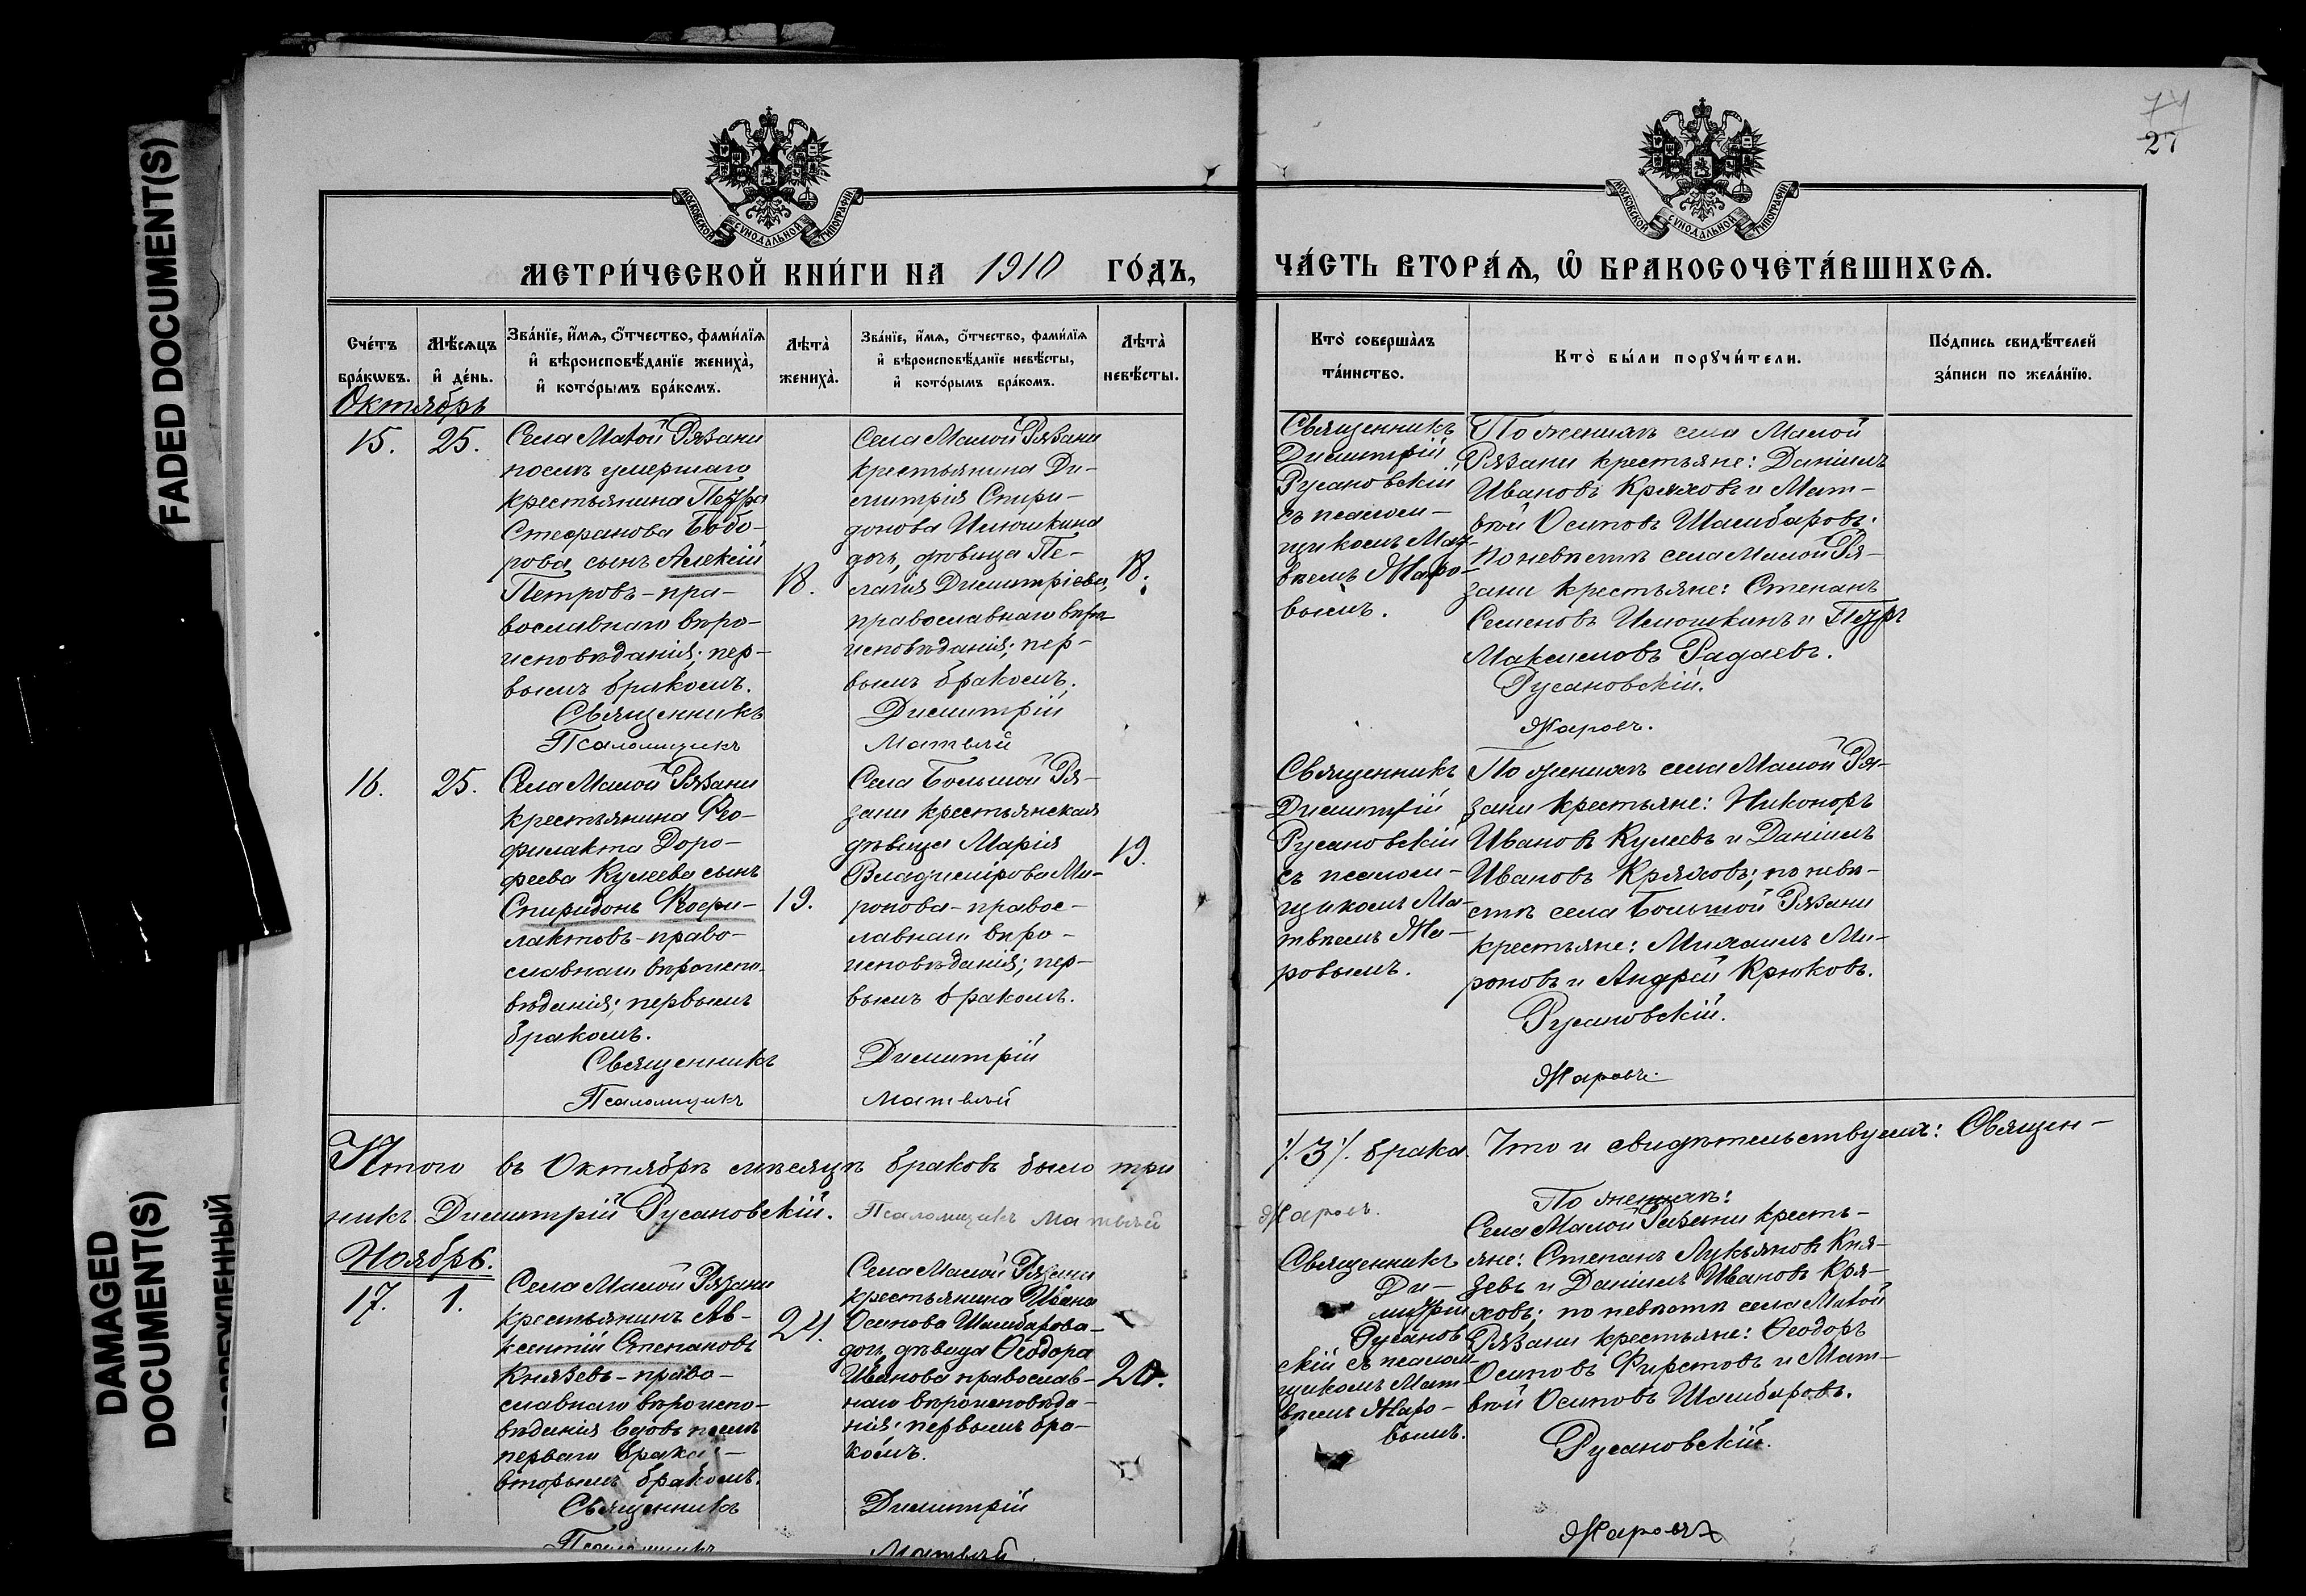 FADED DOCUMENT(S)
DAMAGED
DOCUMENT(S)
74
27
МОСКОВСКОЙ СѴНОДАЛЬНОЙ ТИПОГРАФІИ
МОСКОВСКОЙ СѴНОДАЛЬНОЙ ТИПОГРАФІИ
МЕТРИ́ЧЕСКОЙ КНИ́ГИ НА 1910 ГО́ДЪ,
ЧА́СТЬ ВТОРА́Ѧ, Ѽ БРАКОСОЧЕТА́ВШИХСѦ.
Сче́тъ
бра́кѡвъ.
Мѣ́сѧцъ
и҆ де́нь.
Зва́нїе, и҆́мѧ, ѻ҆́тчество, фами́лїѧ
и҆ вѣроисповѣ́данїе жениха̀,
и҆ кото́рымъ бра́комъ.
Лѣта̀
жениха̀.
Зва́нїе, и҆́мѧ, ѻ҆́тчество, фами́лїѧ
и҆ вѣроисповѣ́данїе невѣ́сты,
и҆ кото́рымъ бра́комъ.
Лѣта̀
невѣ́сты.
Кто̀ соверша́лъ
та́инство.
Кто̀ бы́ли порꙋчи́тели.
По́дпись свидѣ́телей
за́писи по жела́нїю.
Октябрь
15.
25.
Села Малой Рязани
послѣ умершаго
крестьянина Петра
Стефанова Бобо-
рова сынъ Алексій
Петровъ - пра-
вославнаго вѣро-
исповѣданія; пер-
вымъ бракомъ.
Священникъ
Псаломщикъ
18.
Села Малой Рязани
крестьянина Ди-
митрія Спири-
донова Илюшкина
дочь, дѣвица Пе-
лагія Димитріева,
православнаго вѣро-
исповѣданія; пер-
вымъ бракомъ.
Димитрій
Матвѣй
18.
Священникъ
Димитрій
Русановскій
съ псалом-
щикомъ Мат-
вѣемъ Жаро-
вымъ.
По женихѣ села Малой
Рязани крестьяне: Даніилъ
Ивановъ Кряховъ и Мат-
вѣй Осиповъ Шамбаровъ;
по невѣстѣ села Малой Ря-
зани крестьяне: Степанъ
Семеновъ Илюшкинъ и Петръ
Максимовъ Радаевъ.
Русановскій.
Жаровъ.
16.
25.
Села Малой Рязани
крестьянина Ѳео-
филакта Доро-
феева Кулеева сынъ
Спиридонъ Ѳеофи-
лактовъ - право-
славнаго вѣроиспо-
вѣданія; первымъ
бракомъ.
Священникъ
Псаломщикъ
19.
Села Большой Ря-
зани крестьянская
дѣвица Марія
Владимірова Ми-
ронова - правос-
лавнаго вѣро-
исповѣданія; пер-
вымъ бракомъ.
Димитрій
Матвѣй
19.
Священникъ
Димитрій
Русановскій
съ псалом-
щикомъ Ма-
твѣемъ Жа-
ровымъ.
По женихѣ села Малой Ря-
зани крестьяне: Никоноръ
Ивановъ Кулеевъ и Даніилъ
Ивановъ Кряховъ; по невѣ-
стѣ села Большой Рязани
крестьяне: Михаилъ Ми-
роновъ и Андрей Крюковъ.
Русановскій.
Жаровъ.
Итого въ Октябрѣ мѣсяцѣ браковъ было три
/:3:/ брака. Что и свидѣтельствуемъ: Священ-
никъ Димитрій Русановскій. Псаломщикъ Матвѣй
Жаровъ.
Ноябрь.
17.
1.
Села Малой Рязани
крестьянинъ Ав-
ксентій Степановъ
Князевъ - право-
славнаго вѣроиспо-
вѣданія вдовъ послѣ
перваго брака -
вторымъ бракомъ.
Священникъ
Псаломщикъ
24.
Села Малой Рязани
крестьянина Ивана
Осипова Шамбарова -
дочь дѣвица Ѳеодора
Иванова православ-
наго вѣроисповѣда-
нія; первымъ бра-
комъ.
Димитрій
Матвѣй
20.
Священникъ
Ди-
митрій
Русанов
скій съ псалом-
щикомъ Мат-
вѣемъ Жаро-
вымъ.
По женихѣ:
Села Малой Рязани кресть-
яне: Степанъ Лукьяновъ Кня-
зевъ и Даніилъ Ивановъ Кря-
ховъ; по невѣстѣ села Малой
Рязани крестьяне: Ѳеодоръ
Осиповъ Фирстовъ и Мат-
вѣй Осиповъ Шамбаровъ.
Русановскій.
Жаровъ